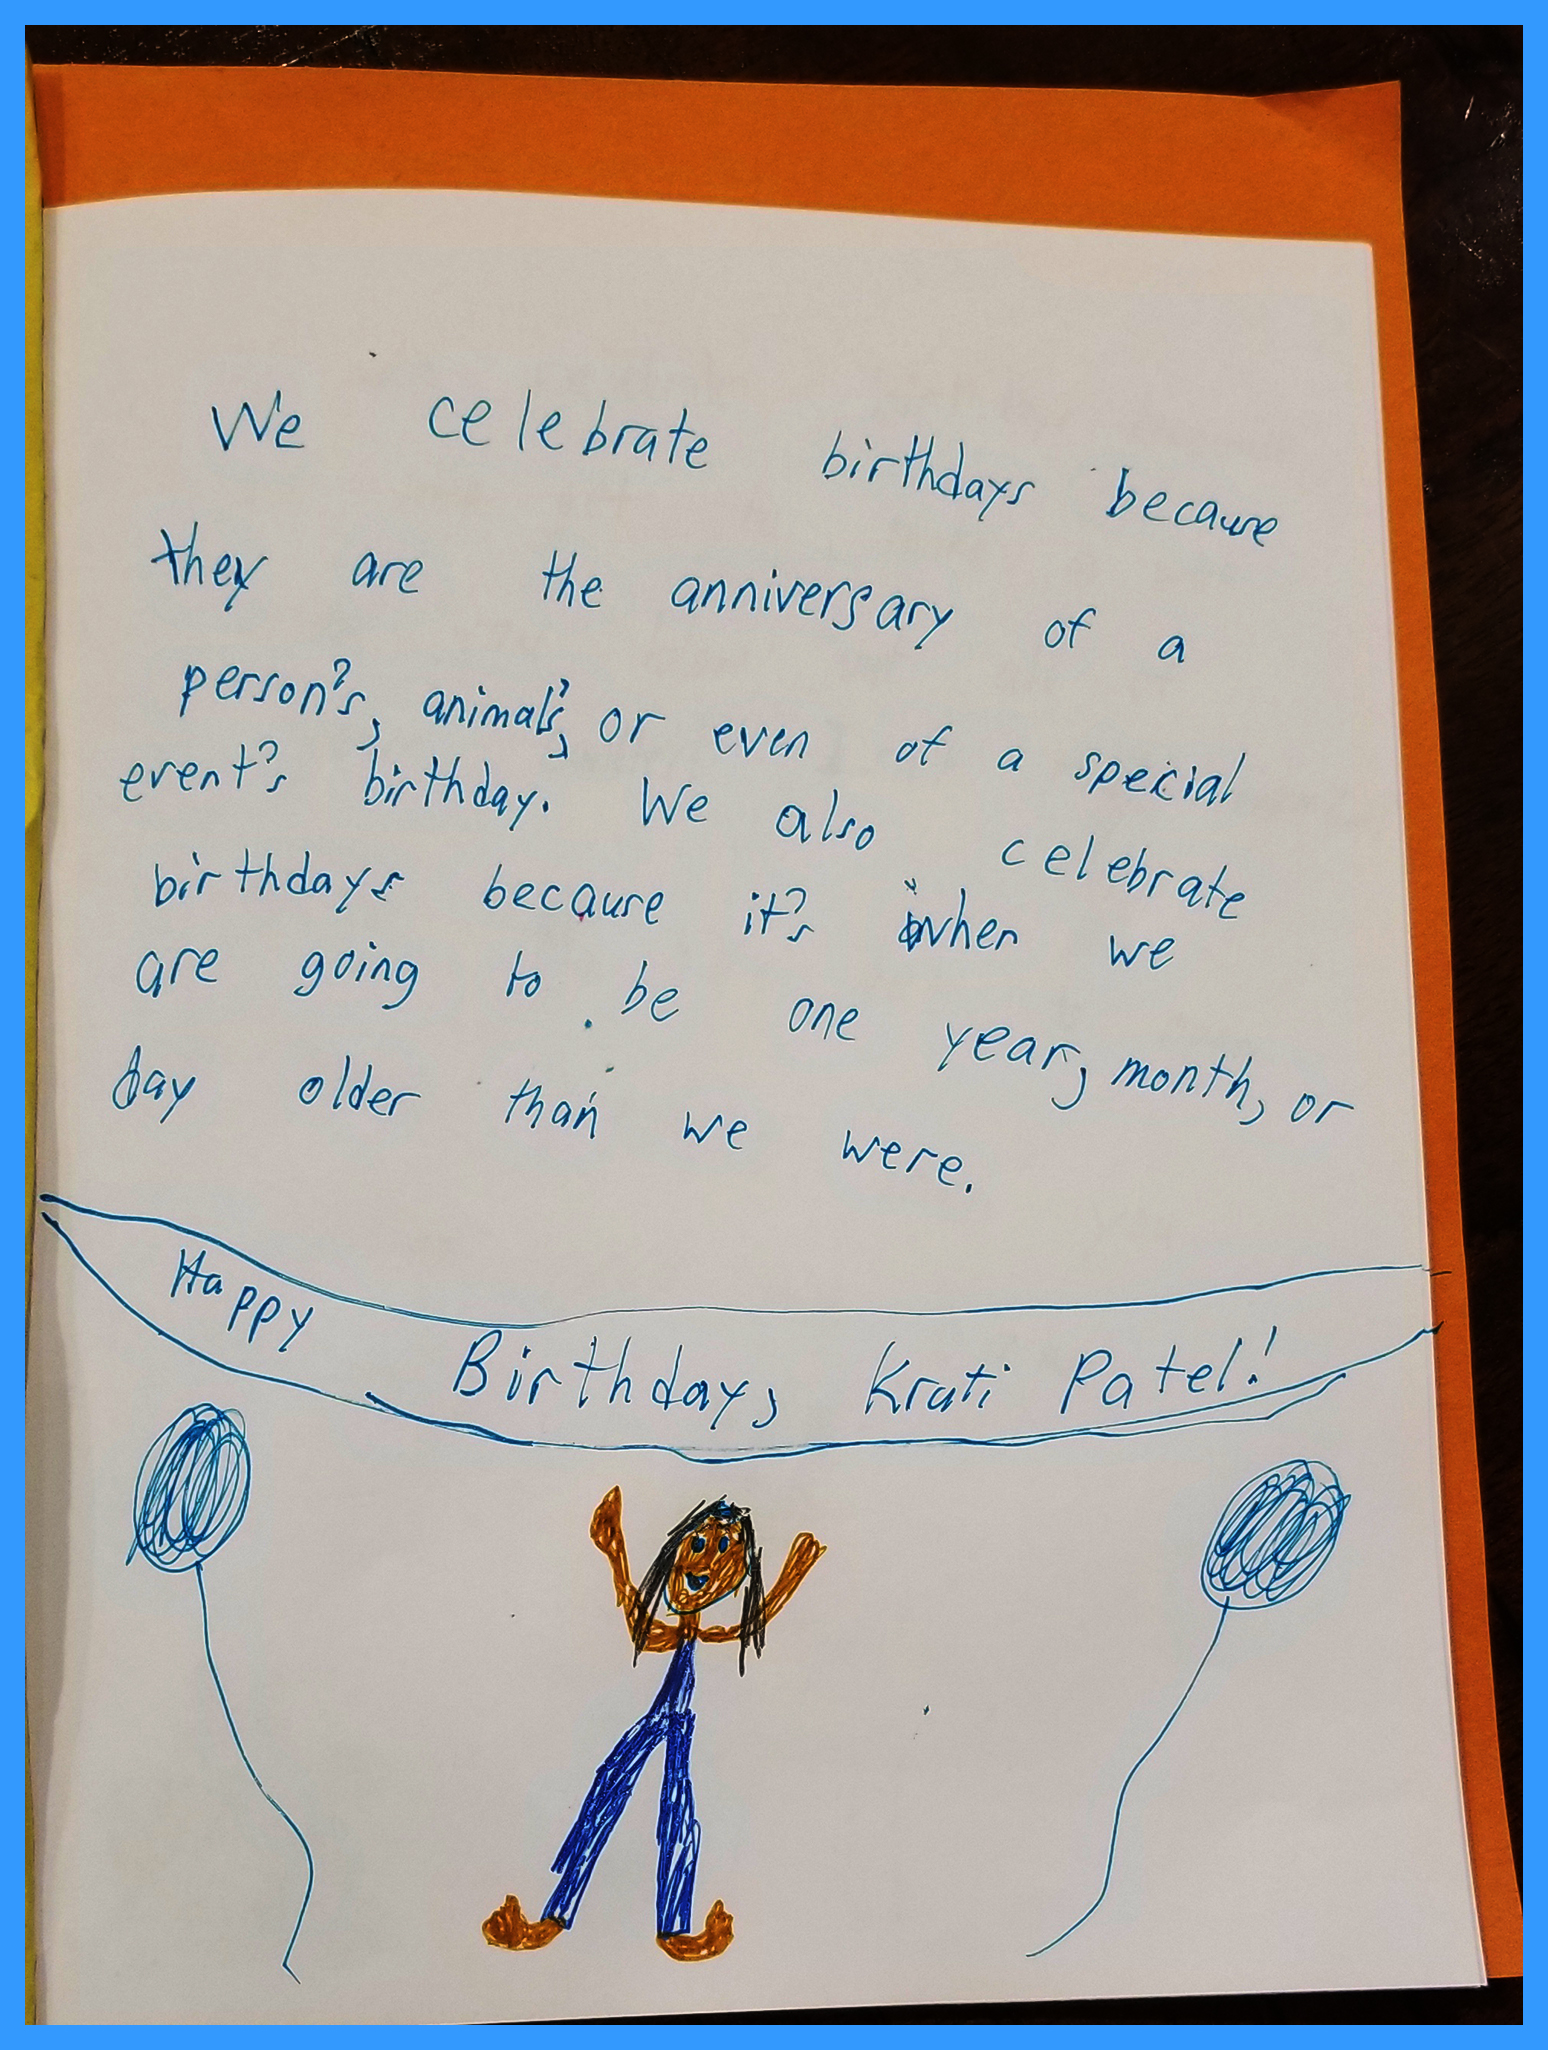 We celebrate birthdays because
they are the anniversary of a
person's, animal's, or even of a special
event's birthday. We also celebrate
birthdays because it's when we
are going to be one year, month, or
day older than we were.
Happy Birthday, Kruti Patel!